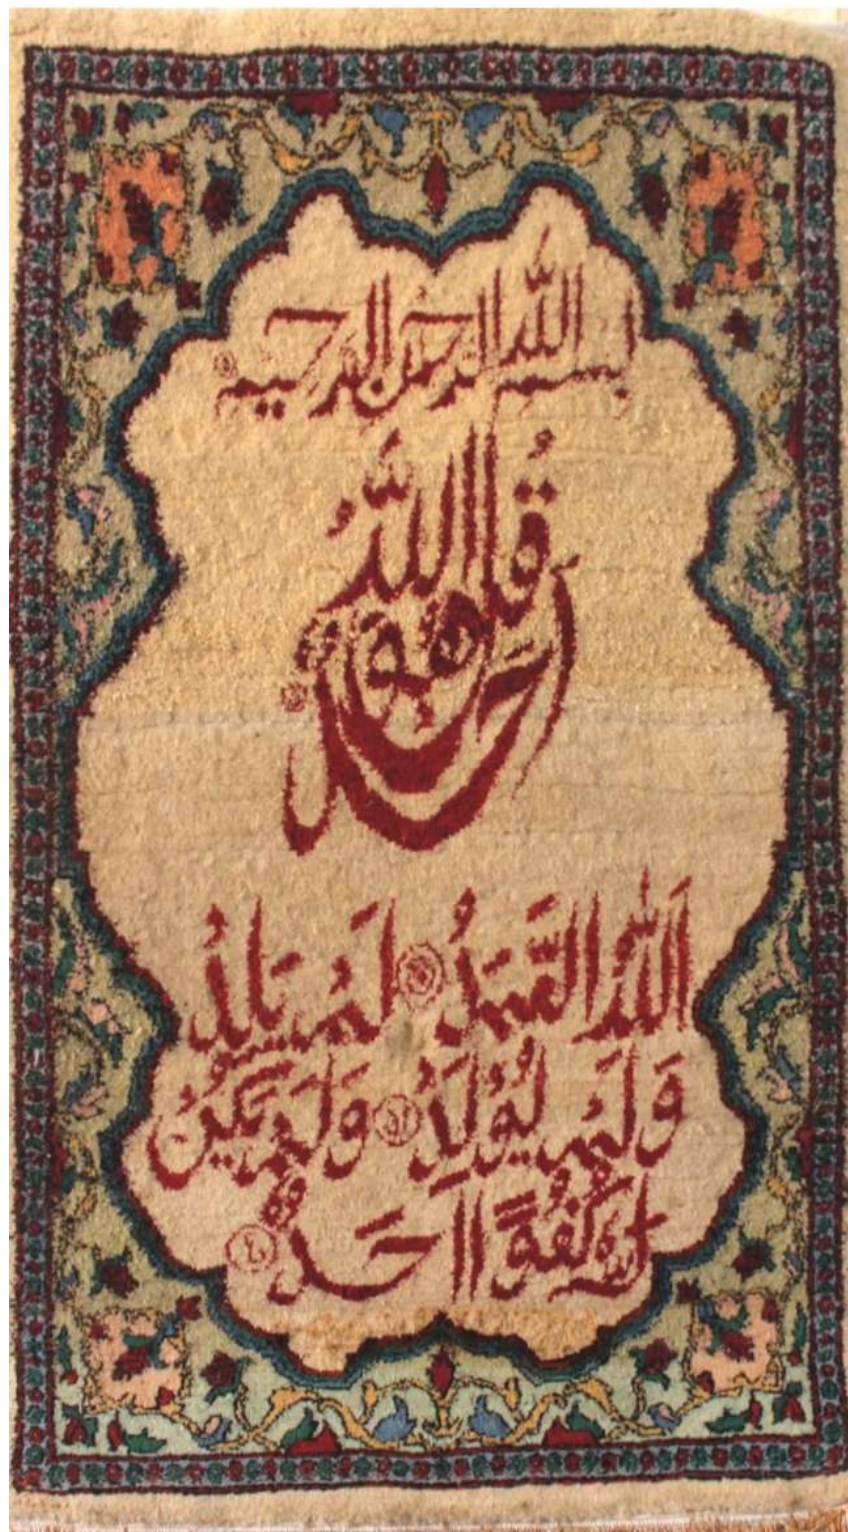 بسم الله الرحمن الرحيم
قُل هُوَ اللهُ
أَحَدٌ
اَللهُ الصَّمَدُ ۝ لَمْ يَلِدْ
وَلَمْ يُوْلَدْ ۝ وَلَمْ يَكُنْ
لَهُ كُفُوًا اَحَدٌ ۝٤